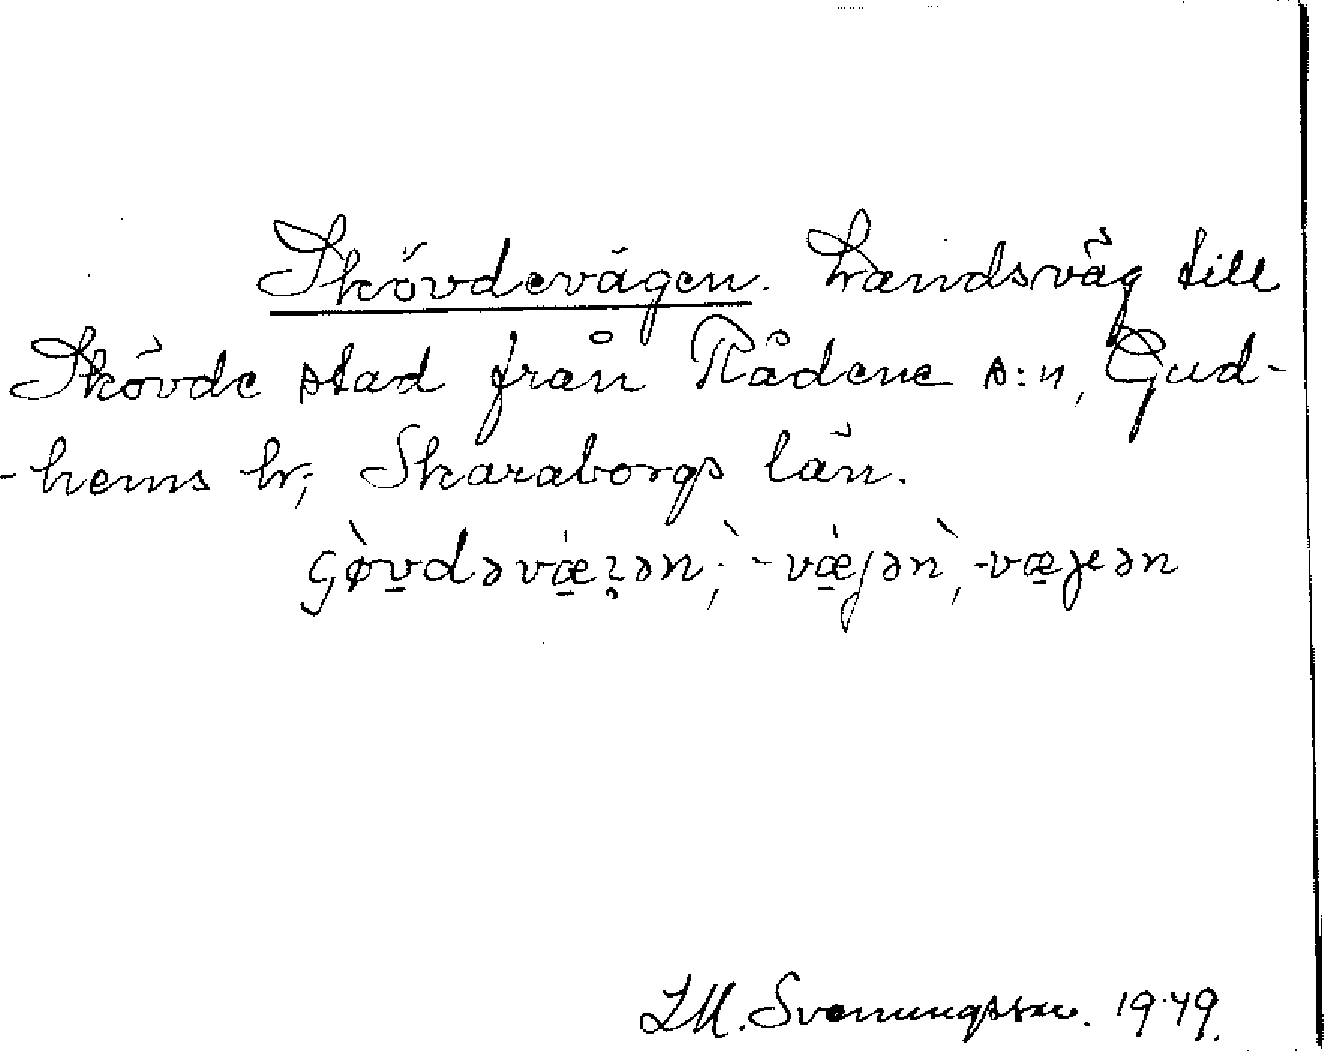 Skövdevägen. Landsväg till
Skövde stad från Rådene s:n, Gud-
-hems hr; Skaraborgs län.
J.M. Svenungsson. 1949.